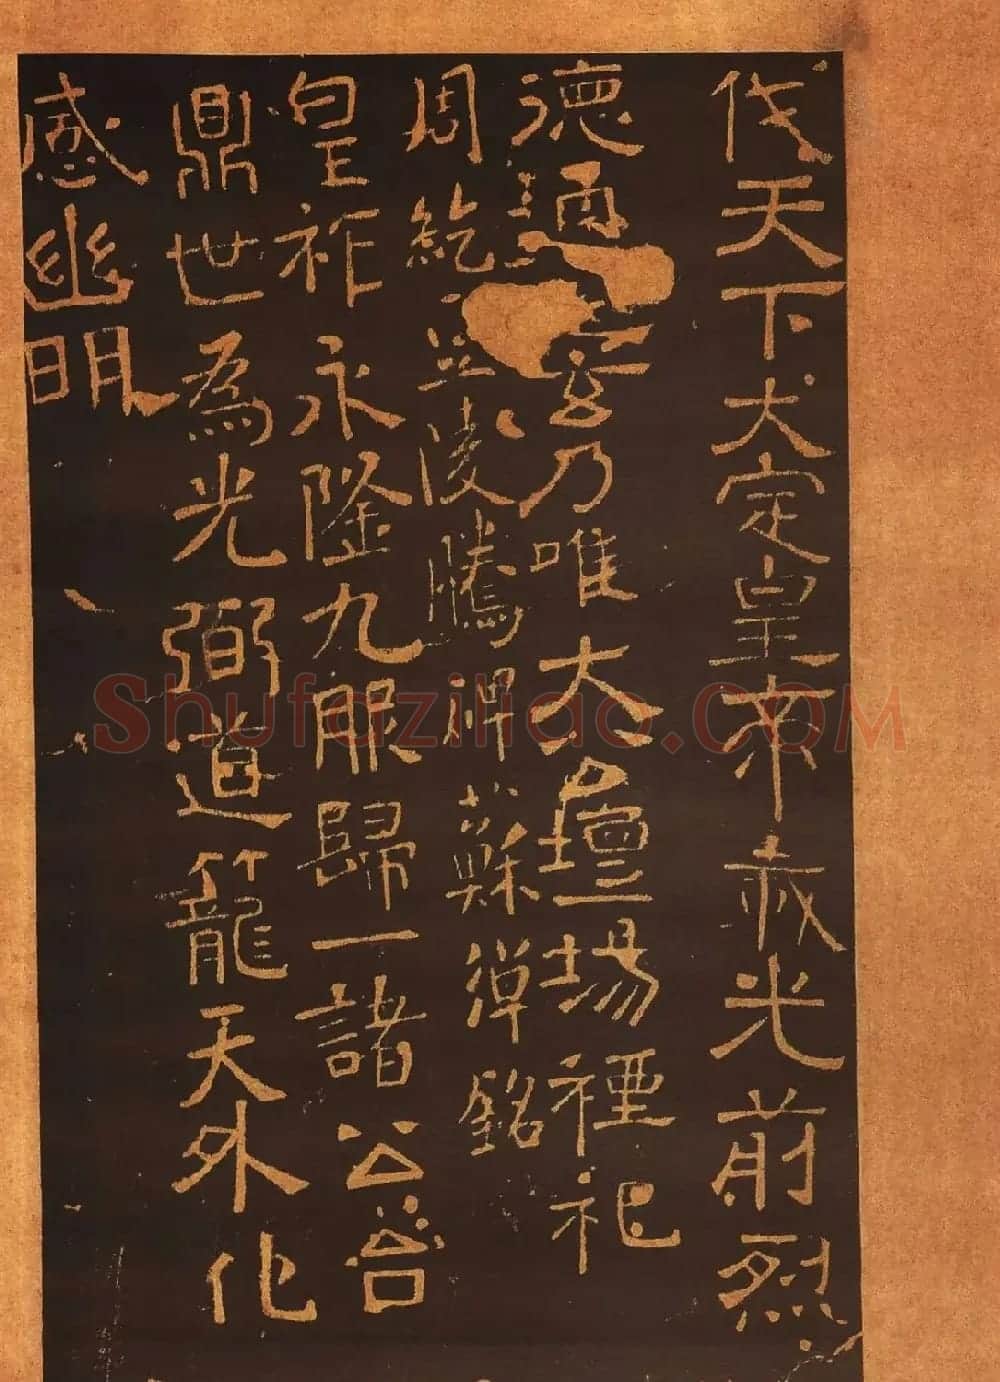 伐天下大定皇帝光前烈
德通玄乃唯大壇場禋祀
周騰銘
皇祚永隆九服歸一諸公
鼎世為光弼道籠天外化
感幽明
Shufaziliao.COM